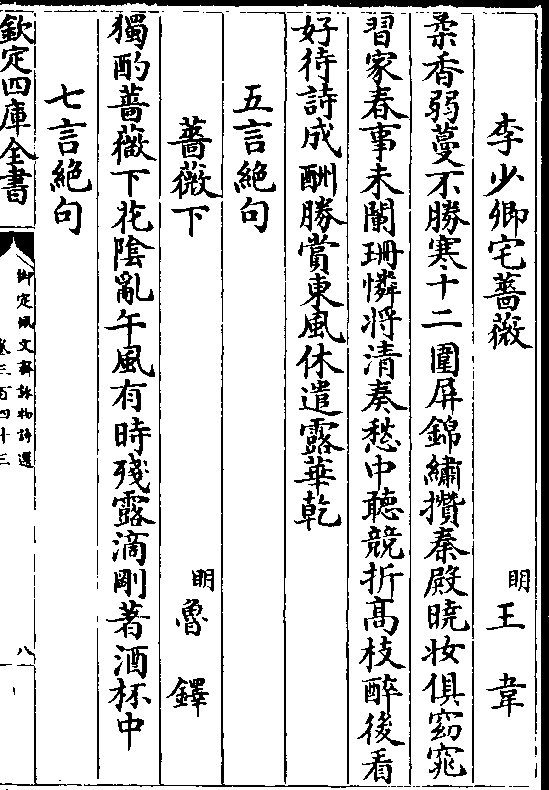 李少卿宅薔薇 明 王韋
柔香弱蔓不勝寒十二圍屏錦繡攢秦殿曉妝俱窈窕
習家春事未闌珊憐將清奏愁中聽競折高枝醉後看
好待詩成酬勝賞東風休遣露華乾
五言絕句
薔薇下 明 魯鐸
獨酌薔薇下花陰亂午風有時殘露滴剛著酒杯中
七言絕句
欽定四庫全書 御定佩文齋詠物詩選 卷三百四十三 八